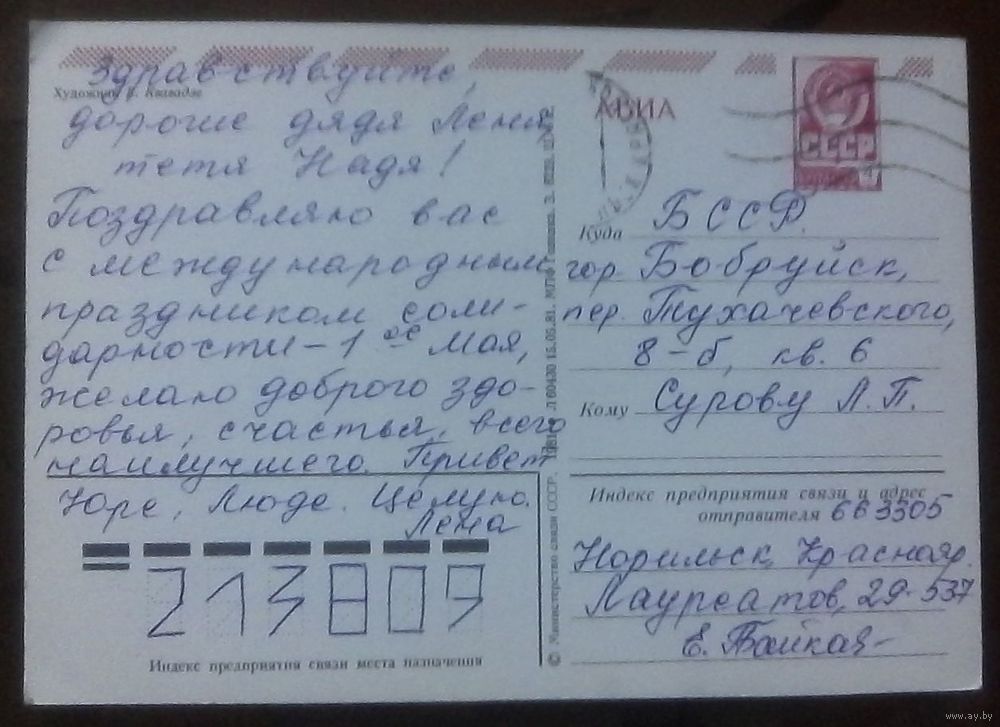 Художник Б. Квавадзе
Здравствуйте,
дорогие дядя Леня,
тетя Надя!
Поздравляю вас
с международным
праздником соли-
дарности – 1 ое Мая,
желаю доброго здо-
ровья, счастья, всего
наилучшего. Привет
Юре, Люде. Целую.
Лена
213809
Индекс предприятия связи места назначения
© Министерство связи СССР.
Л 60430 15.05.81. МПФ Гознака. З.
АВИА
СССР
Куда БССР.
гор. Бобруйск,
пер. Тухачевского,
8-б, кв. 6
Кому Сурову Л.П.
Индекс предприятия связи и адрес
отправителя 663305
Норильск, Краснояр.
Лауреатов, 29-537
Е.
www.ay.by